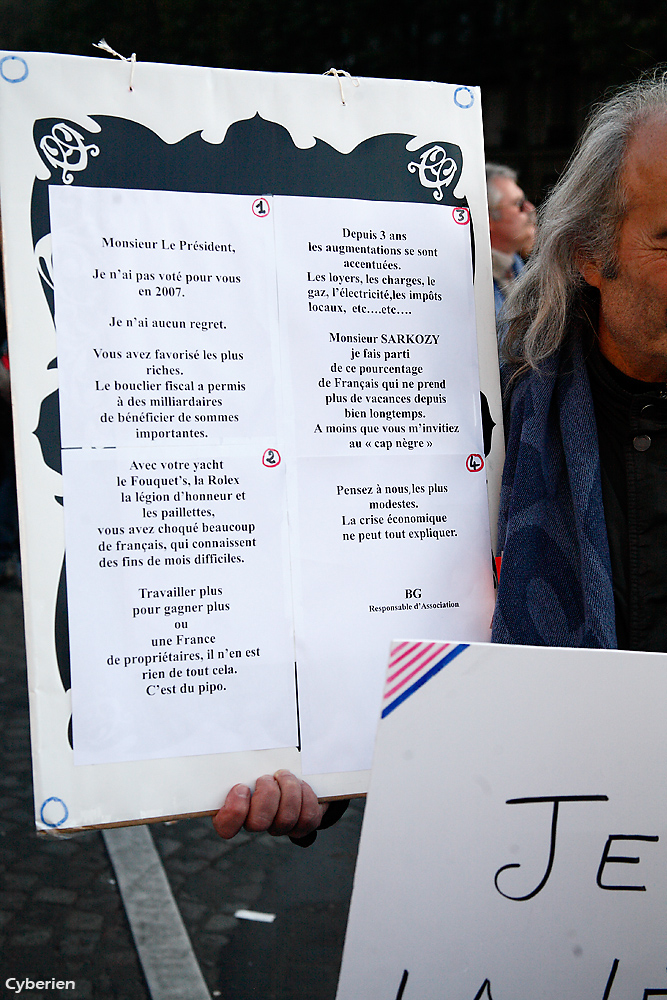 1
Monsieur Le Président,
Je n'ai pas voté pour vous
en 2007.
Je n'ai aucun regret.
Vous avez favorisé les plus
riches.
Le bouclier fiscal a permis
à des milliardaires
de bénéficier de sommes
importantes.
2
Avec votre yacht
le Fouquet's, la Rolex
la légion d'honneur et
les paillettes,
vous avez choqué beaucoup
de français, qui connaissent
des fins de mois difficiles.
Travailler plus
pour gagner plus
ou
une France
de propriétaires, il n'en est
rien de tout cela.
C'est du pipo.
3
Depuis 3 ans
les augmentations se sont
accentuées.
Les loyers, les charges, le
gaz, l'électricité,les impôts
locaux, etc....etc....
Monsieur SARKOZY
je fais parti
de ce pourcentage
de Français qui ne prend
plus de vacances depuis
bien longtemps.
A moins que vous m'invitiez
au « cap nègre »
4
Pensez à nous,les plus
modestes.
La crise économique
ne peut tout expliquer.
BG
Responsable d'Association
JE
LA
Cyberien